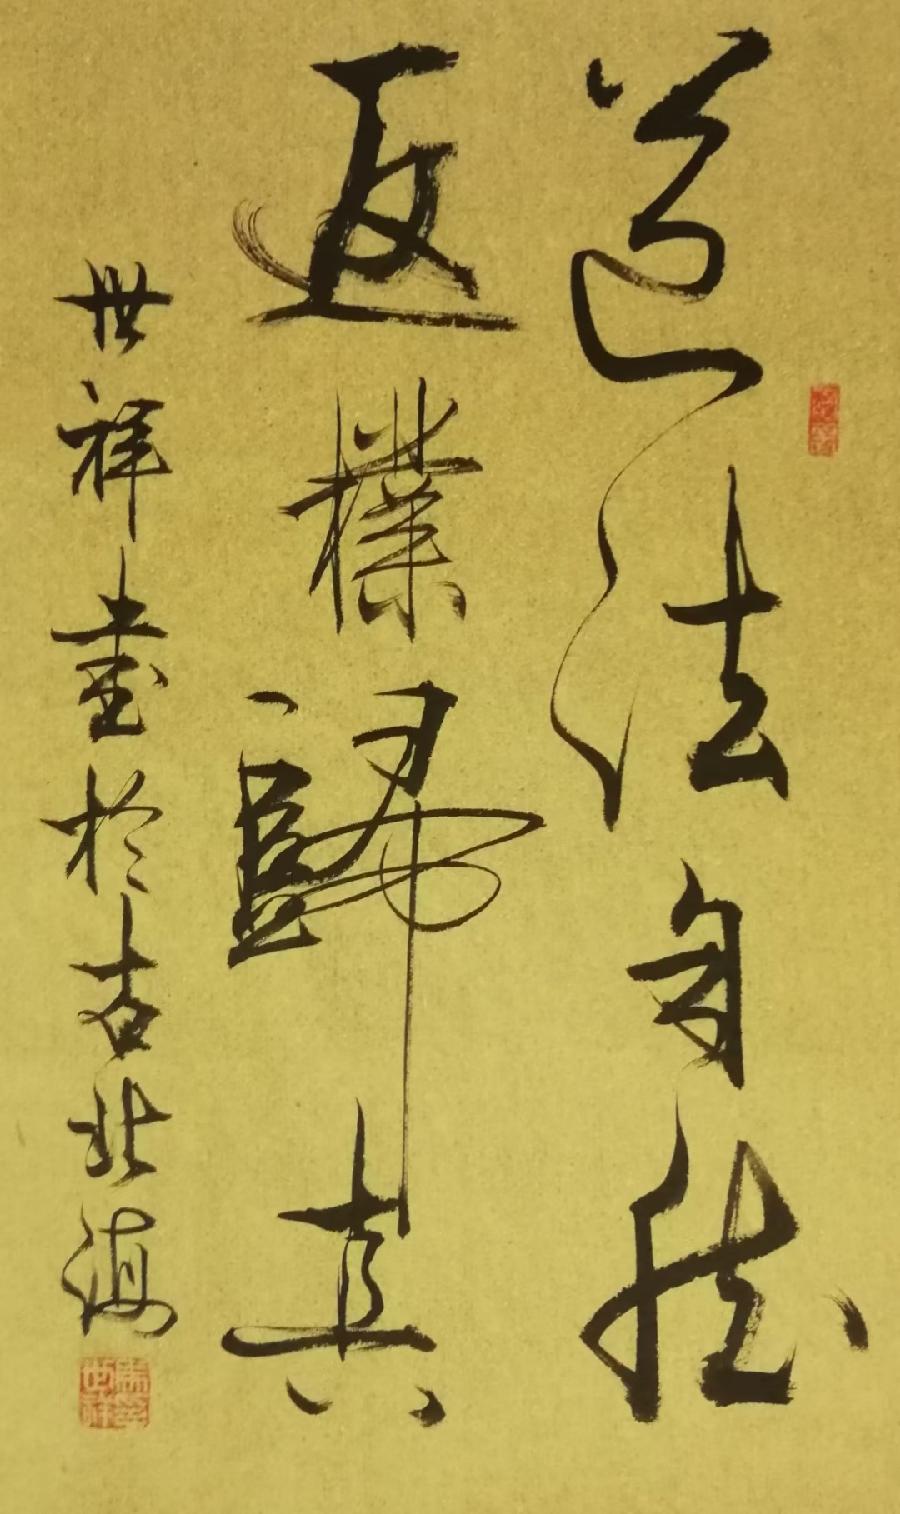 道法自然
返樸歸真
世祥書於古北海